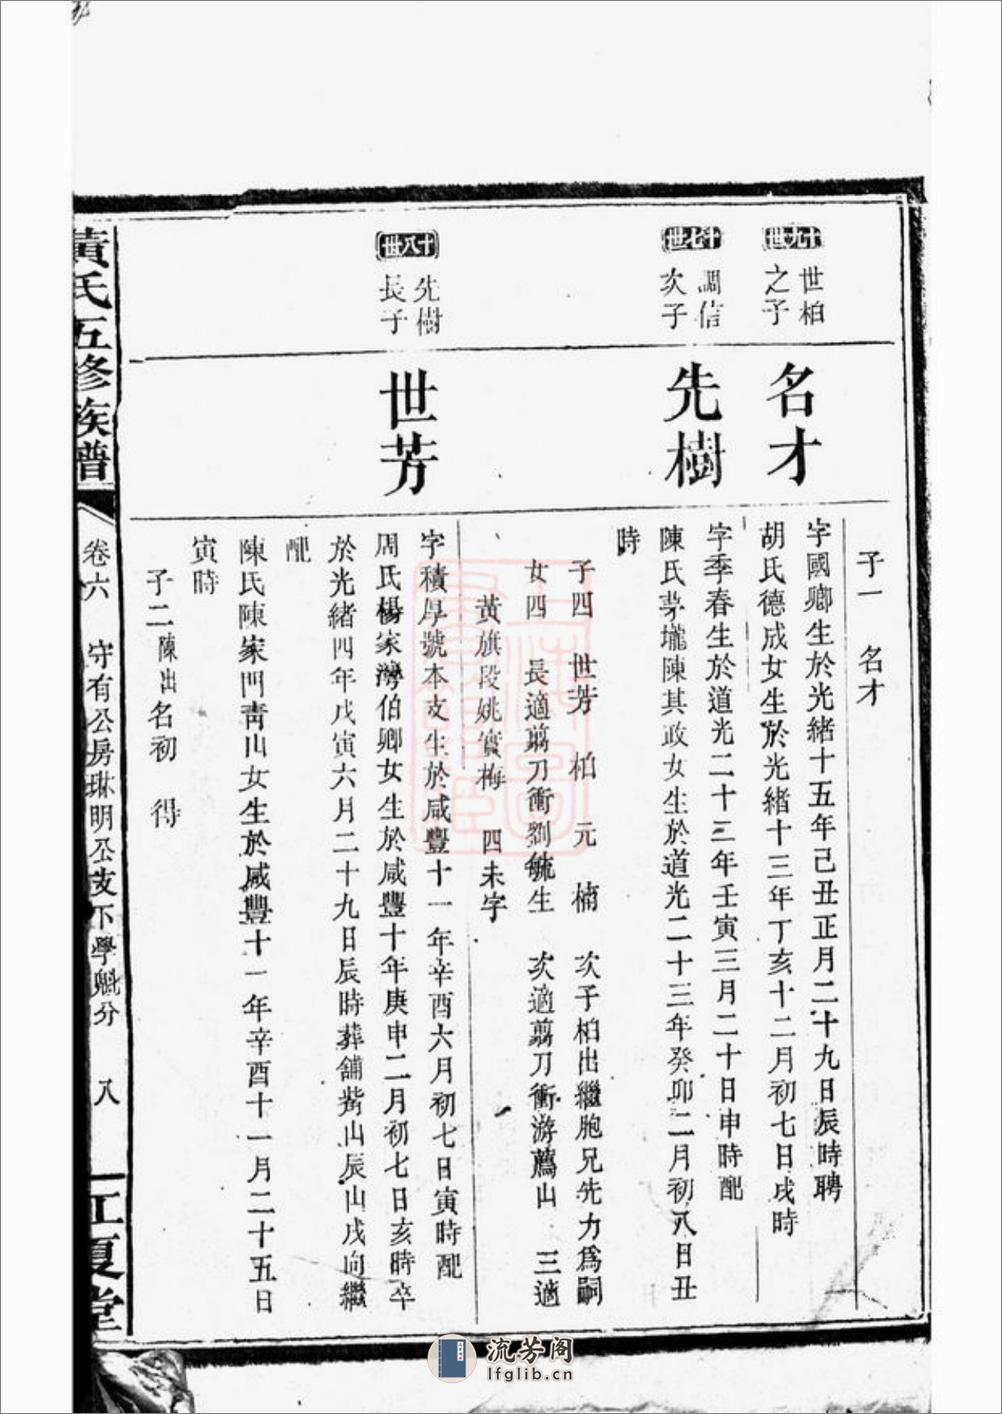 子一　名才
十九世
世柏
之子
名才
字國卿生於光緒十五年己丑正月二十九日辰時聘
胡氏德成女生於光緒十三年丁亥十二月初七日戌時
十七世
調信
次子
先樹
字季春生於道光二十三年壬寅三月二十日申時配
陳氏茅壠陳其政女生於道光二十三年癸卯二月初八日丑
時
子四　世芳　柏　元　楠　次子柏出繼胞兄先力爲嗣
女四　長適剪刀衝劉毓生　次適剪刀衝游薦山　三適
黃旗段姚寳梅　四未字
十八世
先樹
長子
世芳
字積厚號本支生於咸豐十一年辛酉六月初七日寅時配
周氏楊家灣伯卿女生於咸豐十年庚申二月初七日亥時卒
於光緒四年戊寅六月二十九日辰時葬舖觜山辰山戌向繼
配
陳氏陳家門靑山女生於咸豐十一年辛酉十一月二十五日
寅時
子二陳出名初　得
黃氏五修族譜
卷六　守有公房琳明公支下學魁分　八
江夏堂
上海圖
書館藏
流芳阁
lfglib.cn